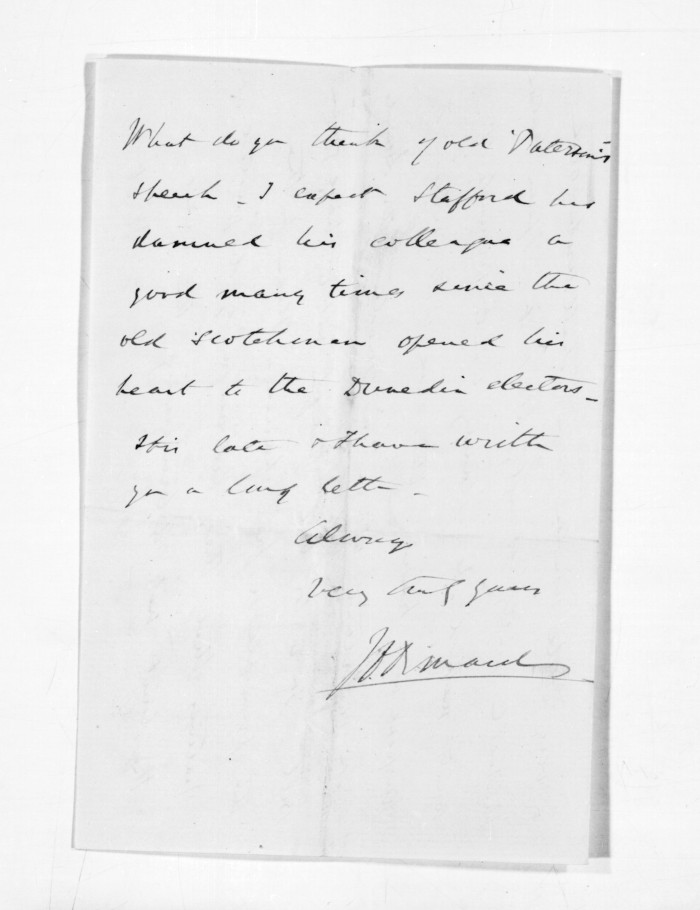 What do you think of old Paterson's
speech _ I expect Stafford has
damned his colleague a
good many times since the
old Scotchman opened his
heart to the Dunedin electors _
It is late & I have written
you a long letter _
Always
Very truly yours